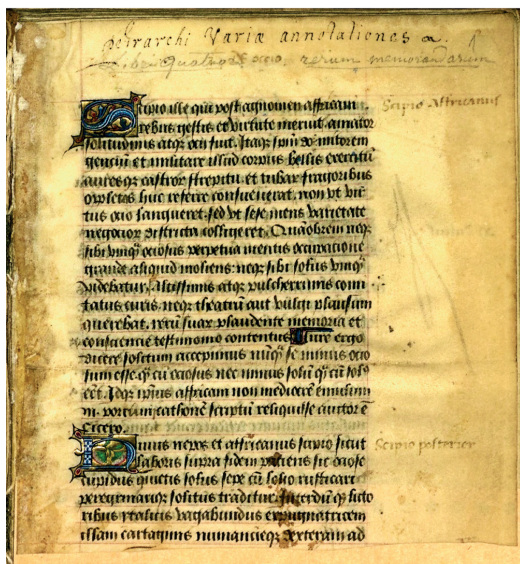 petrarchi Variæ annotationes
quatuor rerum memorandarum
Scipio ille qui post agnomen affricani
rebus gestis et virtute meruit. amator
solitudinis atq ocii fuit. Itaq
gentiū et militare illud corpus bellis exercitū
auresq castror strepitu et tubar fragoribus
huc referre consueuerat, non vt vir
tus ocio langueret. sed vt sese mens varietate
negocior districta colligeret. Quāobrem neq
sibi vnq ociosus perpetua mentis occupatione
grande aliquid moliens: neq sibi solus vnq
videbatur. altissimis atq pulcherrimis comi
tatus curis. neq theatrū aut vulgi plausum
querebat. rerū suar plaudente memoria et
consciencie testimonio contentus Iure ergo
dicere solitum accepimus nūq se minus ocio
sum esse q cū ociosus nec minus solū q cū sol
eēt. Idq affricam non mediocrē
m. porcium cathonē scriptū reliquisse auctor ē
Cicero.
nepos et affricanus scipio sicut
laboris supra fidem paciens sic ociose
cupidus quietis solus sepe cū solo rusticari
peregrinariq solitus traditur. Interdū q licto
ribus vagabundus expugnatricem
illam cartaginis numancieq dexteram ad
Scipio Affricanus
Scipio posterior